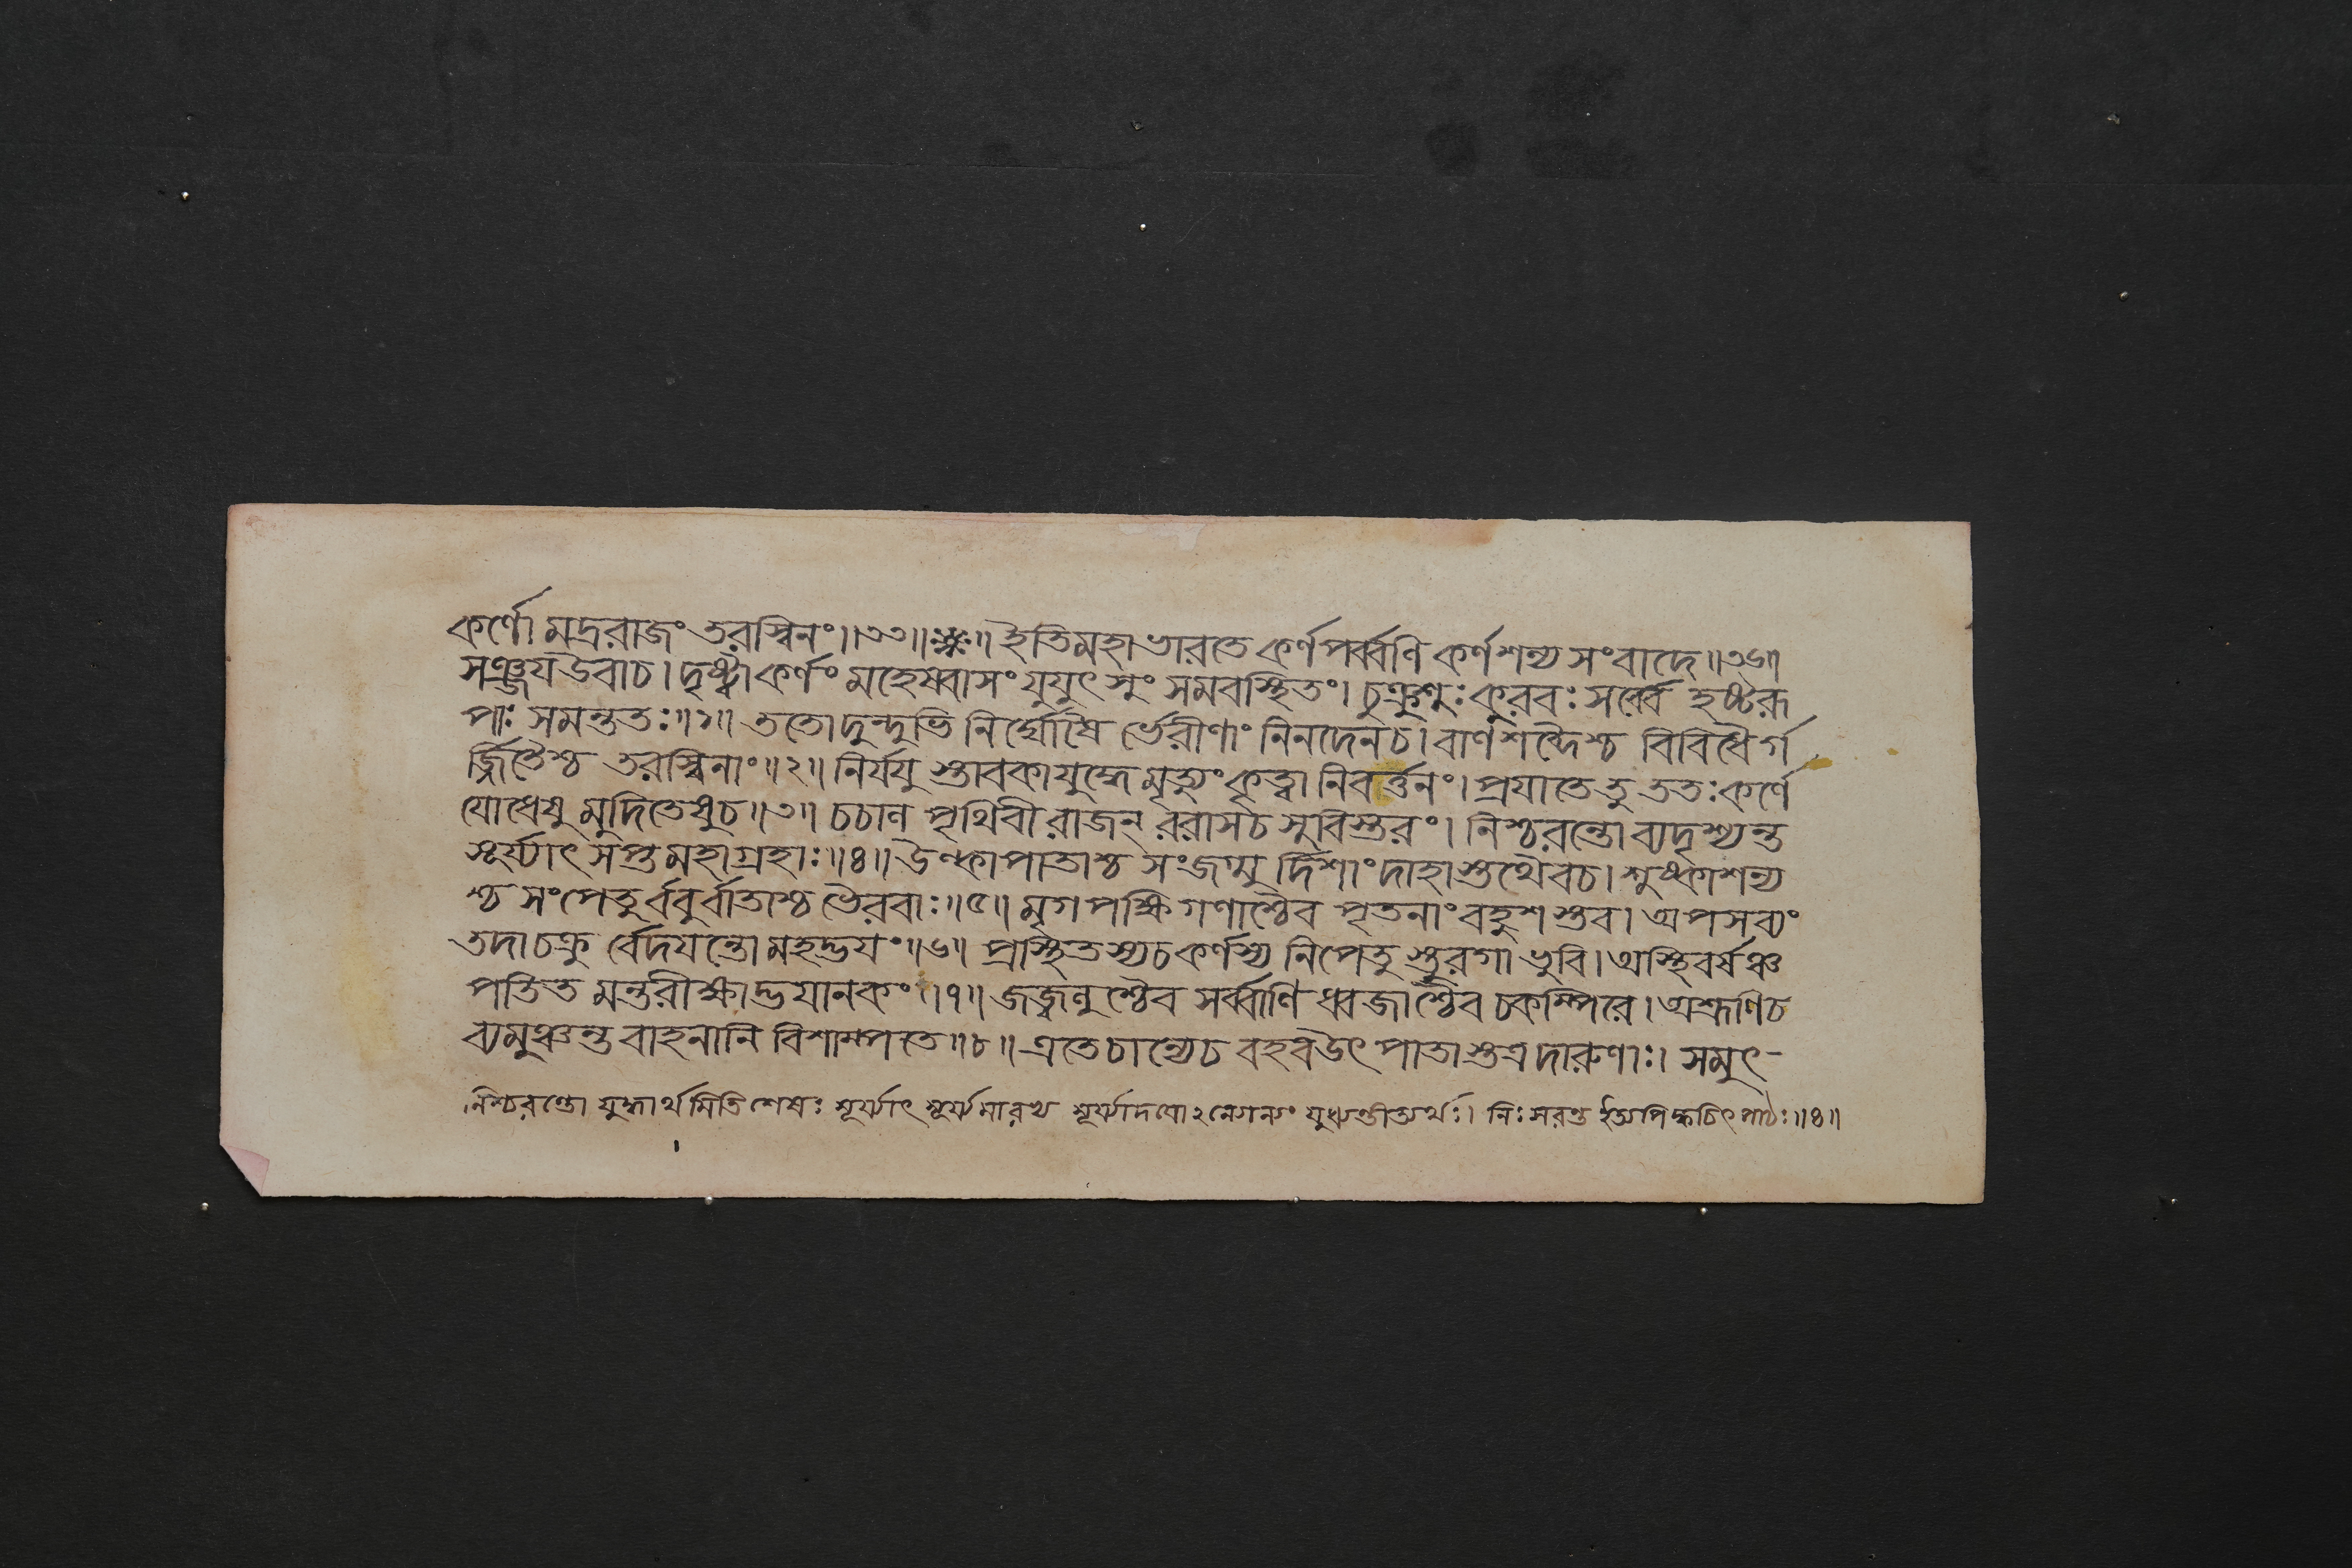 কর্ণো মদ্ররাজং তরস্বিনং॥৩৩॥ঃ॥ ইতিমহাভারতে কর্ণপর্ব্বণি কর্ণশল্য সংবাদে॥৩৬॥
সঞ্জয়উবাচ। দৃষ্ট্বাকর্ণং মহেষ্বাসং যুযুৎসুং সমবস্থিতং। চুক্রুশুঃ কুরবঃ সর্ব্বে হৃষ্টরূ
পাঃ সমন্ততঃ॥১॥ ততোদুন্দুভি নির্ঘোষৈ র্ভেরীণাং নিনদেনচ। বাণশব্দৈশ্চ বিবিধৈর্গ
র্জ্জিতৈশ্চ তরস্বিনাং॥২॥ নির্যযু স্তাবকাযুদ্ধে মৃত্যুং কৃত্বা নিবর্ত্তনং। প্রযাতে তু ততঃকর্ণে
যোধেষু মুদিতেষুচ॥৩॥ চচাল পৃথিবী রাজন্ ররাসচ সুবিস্তরং। নিশ্চরন্তো ব্যদৃশ্যন্ত
সূর্য্যাৎ সপ্ত মহাগ্রহাঃ॥৪॥ উল্কাপাতাশ্চ সংজজ্ঞু র্দিশাংদাহাস্তথৈবচ। শুষ্কাশন্য
শ্চ সংপেতু র্ববুর্বাতাশ্চ ভৈরবাঃ॥৫॥ মৃগপক্ষিগণাশ্চৈব পৃতনাং বহুশ স্তব। অপসব্যং
তদাচক্রু র্বেদয়ন্তো মহদ্ভয়ং॥৬॥ প্রস্থিতস্যচ কর্ণস্য নিপেতু স্তুরগা ভুবি। অস্থিবর্ষঞ্চ
পতিত মন্তরীক্ষাদ্ভয়ানকং॥৭॥ জজ্বলুশ্চৈব সর্ব্বাণি ধ্বজাশ্চৈব চকম্পিরে। অশ্রূণিচ
ব্যমুঞ্চন্ত বাহনানি বিশাম্পতে॥৮॥ এতেচান্যেচ বহবউৎ পাতাস্তত্র দারুণাঃ। সমুৎ-
নিশ্চরন্তো যুদ্ধার্থমিতিশেষঃ সূর্য্যাৎ সূর্য্যমারভ্য সূর্য্যাদযো নিঃসরন্ত ইত্যপি ক্বচিৎ পাঠঃ॥৪॥